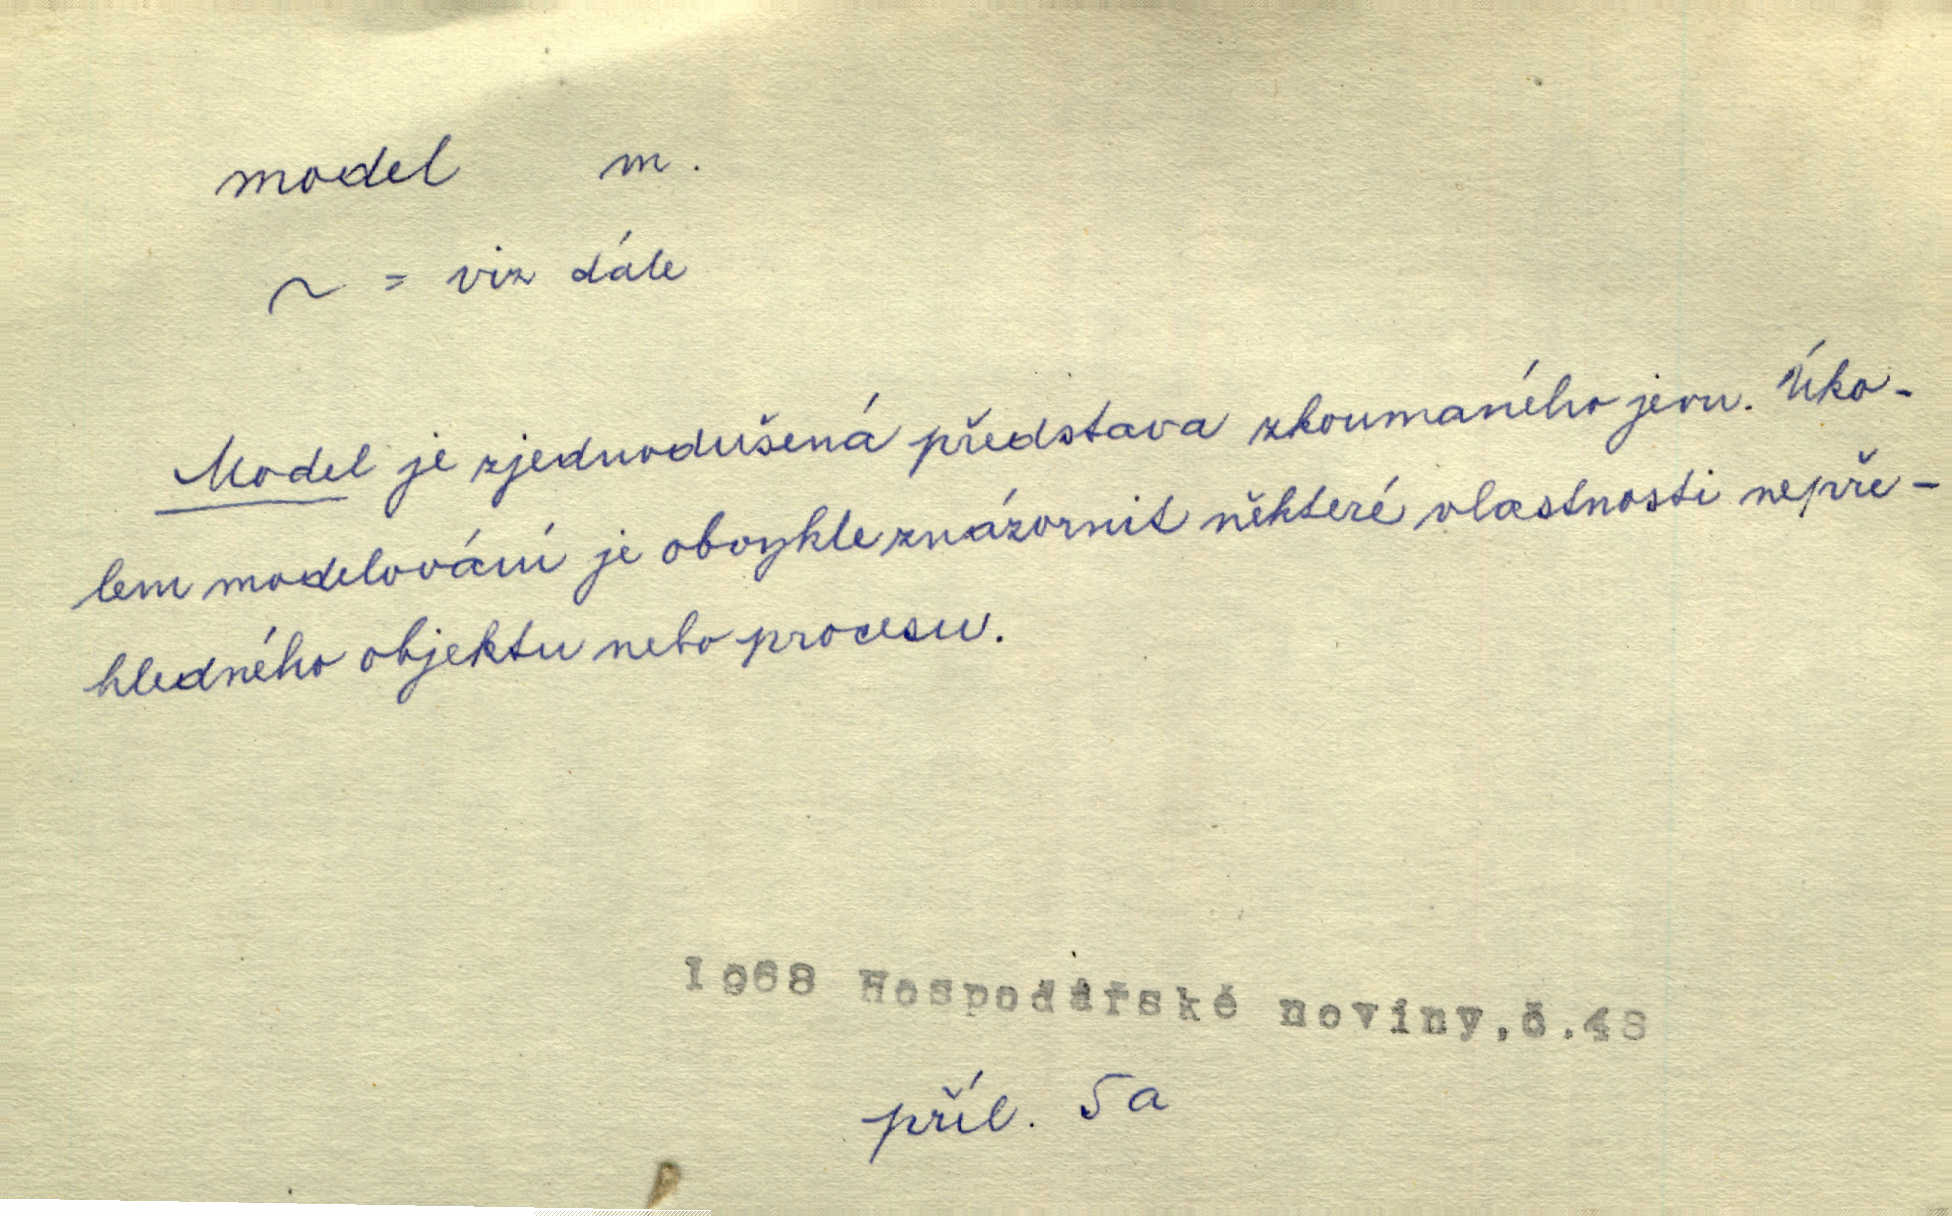 model m.
~ = viz dále
Model je zjednodušená představa zkoumaného jevu. Úko-
lem modelování je obvykle znázornit některé vlastnosti nepře-
hledného objektu nebo procesu.
1968 Hospodářské noviny,č.48
příl. 5a